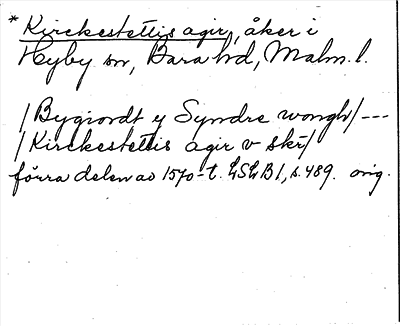 * Kirckestettis agir, åker i
Hyby sn, Bara hd, Malm. l.
/Bygiordt y Syndre wongh/ ---
/Kirckestettis agir v skr/
förra delen av 1570-t. LSLB 1, s. 489. orig.